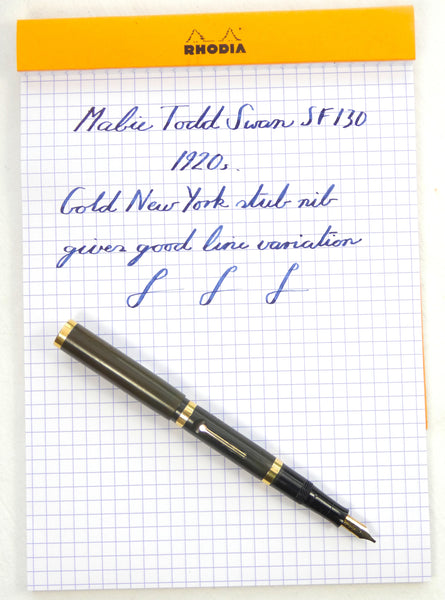 RHODIA
Mabie Todd Swan SF130
1920s.
Gold New York stub nib
gives good line variation
f f f